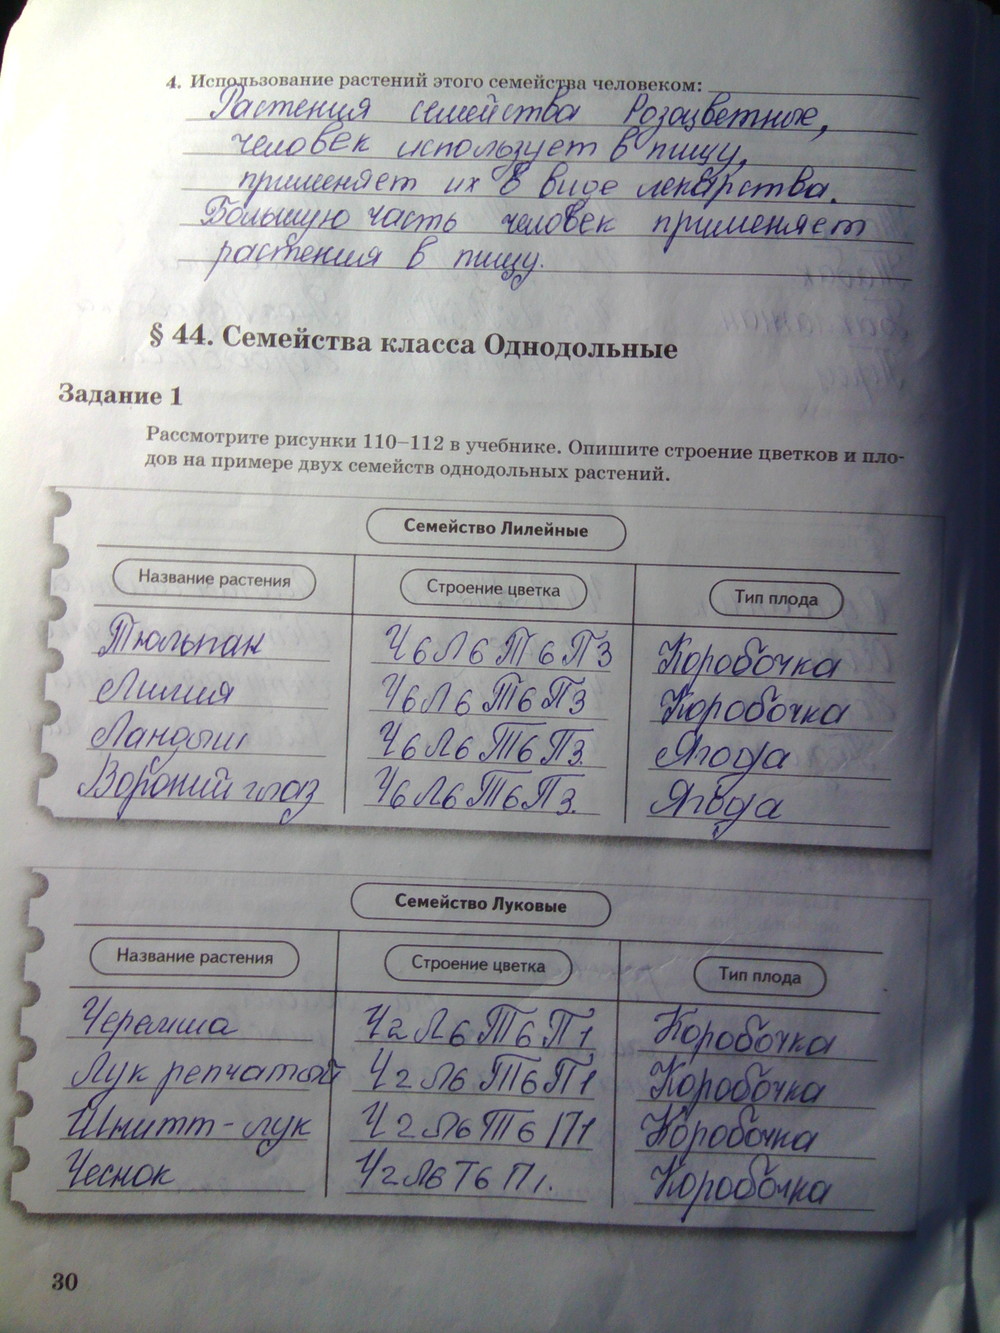 4. Использование растений этого семейства человеком:
Растения семейства Розацветные,
человек использует в пищу,
применяет их в виде лекарства.
Большую часть человек применяет
растения в пищу.
§ 44. Семейства класса Однодольные
Задание 1
Рассмотрите рисунки 110–112 в учебнике. Опишите строение цветков и пло-
дов на примере двух семейств однодольных растений.
Семейство Лилейные
Название растения Строение цветка Тип плода
Тюльпан Ч6Л6Т6П3 Коробочка
Лилия Ч6Л6Т6П3 Коробочка
Ландыш Ч6Л6Т6П3. Ягода
Вороний глаз Ч6Л6Т6П3. Ягода
Семейство Луковые
Название растения Строение цветка Тип плода
Черемша Ч2Л6Т6П1 Коробочка
Лук репчатый Ч2Л6Т6П1 Коробочка
Шнитт-лук Ч2Л6Т6П1 Коробочка
Чеснок Ч2Л6Т6П1. Коробочка
30